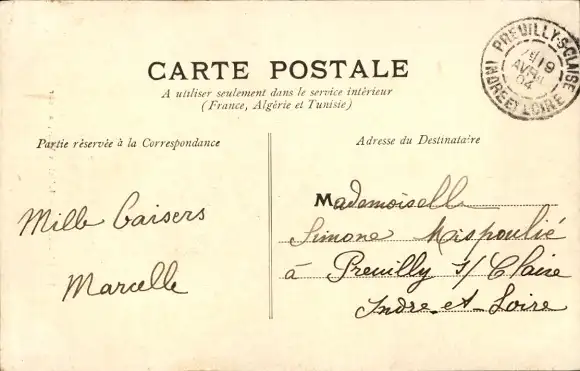 CARTE POSTALE
A utiliser seulement dans le service intérieur
(France, Algérie et Tunisie)
PREUILLY-S-CLAISE
AVRIL
04
INDRE ET LOIRE
Partie réservée à la Correspondance
Mille baisers
Marcelle
Adresse du Destinataire
Mademoiselle
Simone Mispoulié
à Preuilly s/ Claise
Indre-et-Loire